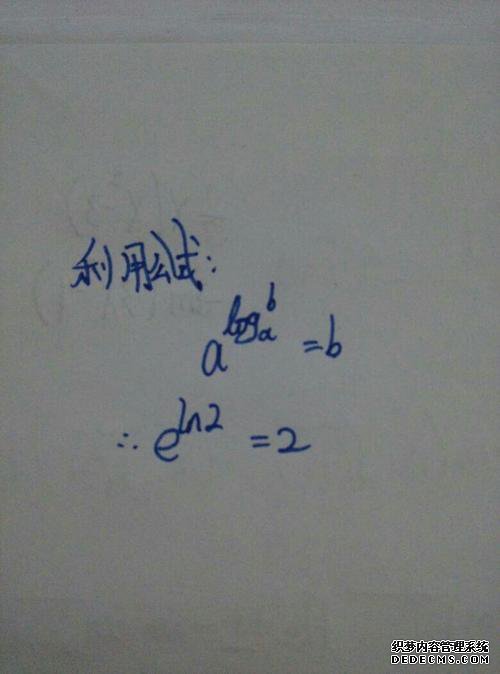 利用公式:
a^{log_a^b} = b
∴ e^{ln2} = 2
织梦内容管理系统
DEDECMS.COM